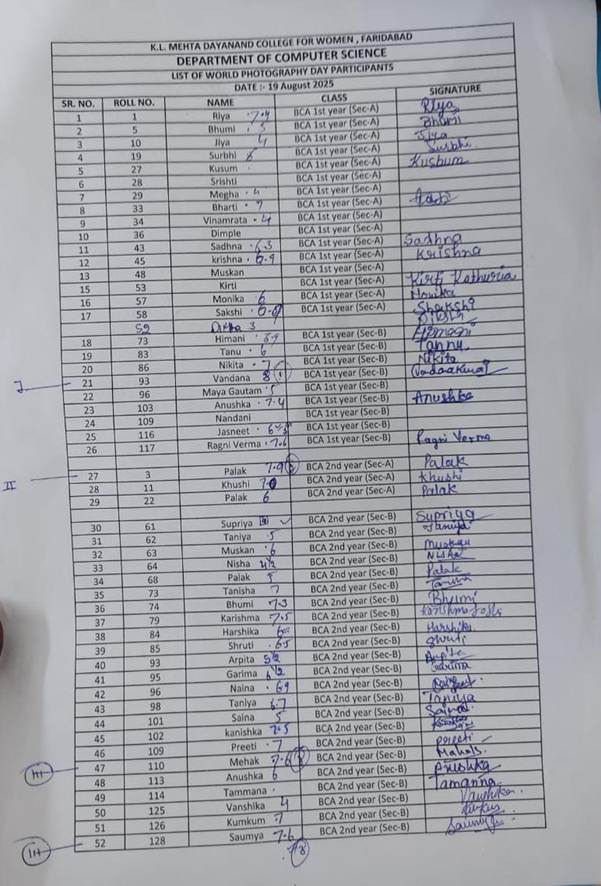 K.L. MEHTA DAYANAND COLLEGE FOR WOMEN , FARIDABAD
DEPARTMENT OF COMPUTER SCIENCE
LIST OF WORLD PHOTOGRAPHY DAY PARTICIPANTS
DATE :- 19 August 2025
SR. NO. ROLL NO. NAME CLASS SIGNATURE
1 1 Riya 7.4 BCA 1st year (Sec-A) Riya
2 5 Bhumi 5 BCA 1st year (Sec-A) Bhumi
3 10 Jiya 4 BCA 1st year (Sec-A) Jiya
4 19 Surbhi 8 BCA 1st year (Sec-A) Surbhi
5 27 Kusum BCA 1st year (Sec-A) Kushum
6 28 Srishti BCA 1st year (Sec-A)
7 29 Megha 4 BCA 1st year (Sec-A)
8 33 Bharti 7 BCA 1st year (Sec-A)
9 34 Vinamrata 4 BCA 1st year (Sec-A)
10 36 Dimple BCA 1st year (Sec-A)
11 43 Sadhna 6.3 BCA 1st year (Sec-A) Sadhna
12 45 krishna 6.9 BCA 1st year (Sec-A) Krishna
13 48 Muskan BCA 1st year (Sec-A)
15 53 Kirti BCA 1st year (Sec-A) Kirti Kathuria
16 57 Monika 6 BCA 1st year (Sec-A) Monika
17 58 Sakshi BCA 1st year (Sec-A) Shakshi
52 3
18 73 Himani BCA 1st year (Sec-B) Himani
19 83 Tanu 6 BCA 1st year (Sec-B) Tannu
20 86 Nikita 7 BCA 1st year (Sec-B) Nikita
I 21 93 Vandana 8 BCA 1st year (Sec-B)
22 96 Maya Gautam 5 BCA 1st year (Sec-B)
23 103 Anushka 7.4 BCA 1st year (Sec-B) Anushka
24 109 Nandani BCA 1st year (Sec-B)
25 116 Jasneet BCA 1st year (Sec-B)
26 117 Ragni Verma 7.6 BCA 1st year (Sec-B) Ragni Verma
II 27 3 Palak 7.9 BCA 2nd year (Sec-A) Palak
28 11 Khushi 7.0 BCA 2nd year (Sec-A) Khushi
29 22 Palak 6 BCA 2nd year (Sec-A) Palak
30 61 Supriya BCA 2nd year (Sec-B) Supriya
31 62 Taniya 5 BCA 2nd year (Sec-B) Taniya
32 63 Muskan 6 BCA 2nd year (Sec-B) Muskan
33 64 Nisha 4½ BCA 2nd year (Sec-B) Nisha
34 68 Palak 5 BCA 2nd year (Sec-B) Palak
35 73 Tanisha 7 BCA 2nd year (Sec-B)
36 74 Bhumi 7.3 BCA 2nd year (Sec-B) Bhumi
37 79 Karishma 7.5 BCA 2nd year (Sec-B)
38 84 Harshika 6 BCA 2nd year (Sec-B) Harshika
39 85 Shruti 6.5 BCA 2nd year (Sec-B) Shruti
40 93 Arpita 5½ BCA 2nd year (Sec-B) Arpita
41 95 Garima 6½ BCA 2nd year (Sec-B) Garima
42 96 Naina 6.9 BCA 2nd year (Sec-B)
43 98 Taniya 6.7 BCA 2nd year (Sec-B) Taniya
44 101 Saina 5 BCA 2nd year (Sec-B) Saina
45 102 kanishka 7.5 BCA 2nd year (Sec-B)
46 109 Preeti 7 BCA 2nd year (Sec-B) Preeti
III 47 110 Mehak 7.6 BCA 2nd year (Sec-B)
48 113 Anushka 6 BCA 2nd year (Sec-B) Anushka
49 114 Tammana BCA 2nd year (Sec-B) Tamanna
50 125 Vanshika 4 BCA 2nd year (Sec-B) Vanshika
51 126 Kumkum 7 BCA 2nd year (Sec-B)
III 52 128 Saumya 7.6 BCA 2nd year (Sec-B)